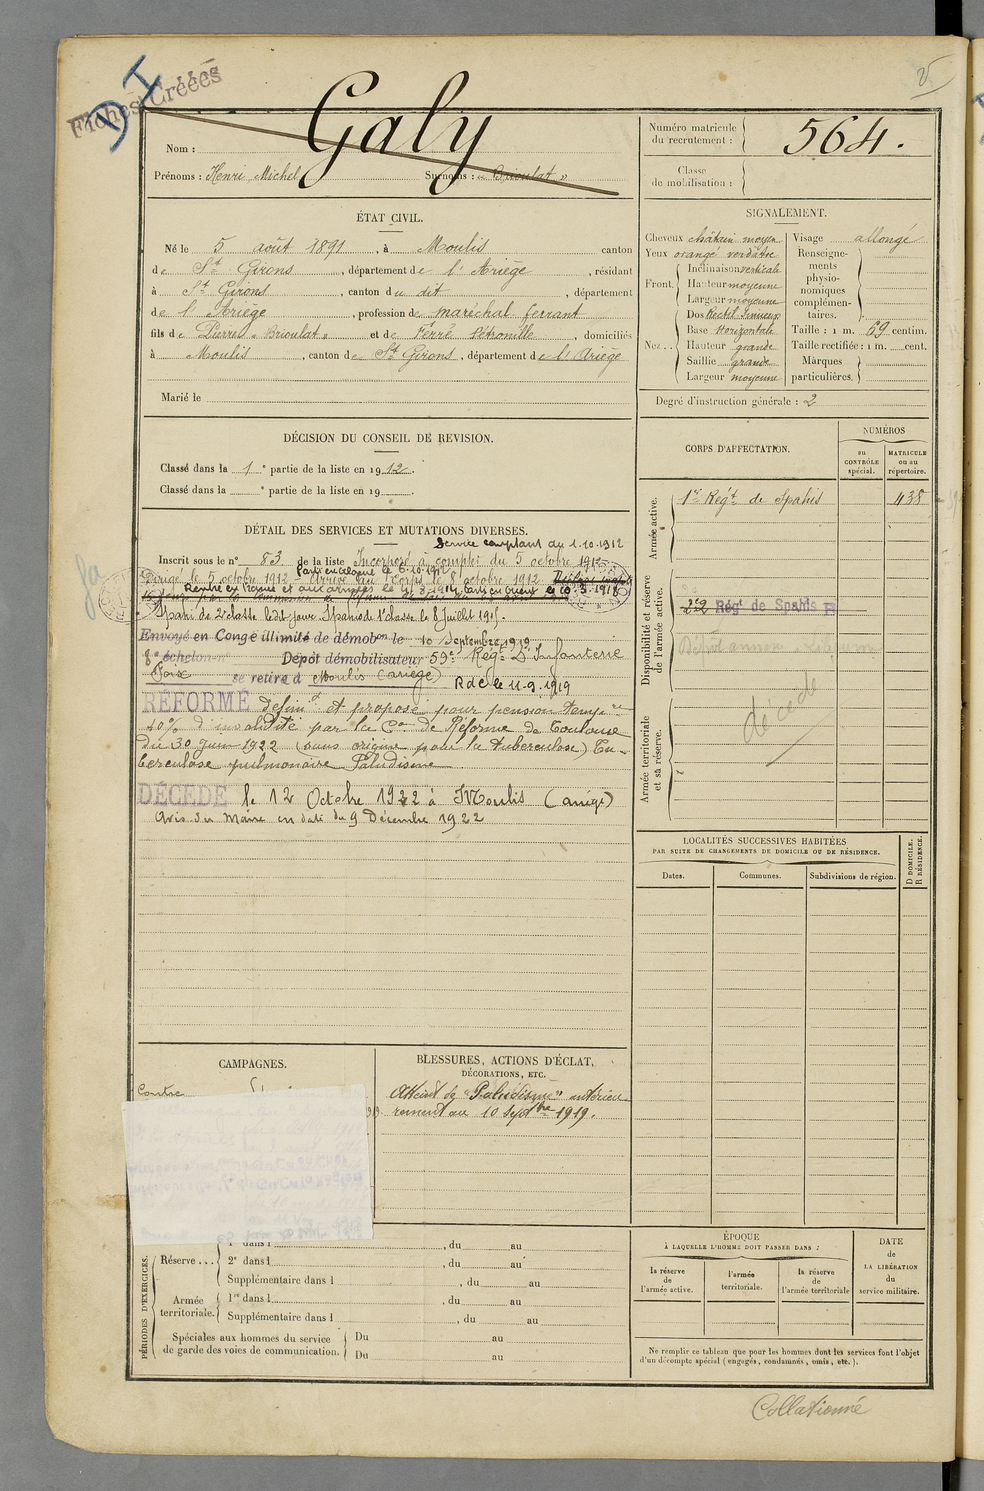 Fiches Créées
I
Galy
Nom :
Prénoms : Henri Michel Surnoms : « Brioulat »
Numéro matricule du recrutement : 564.
Classe de mobilisation :
ÉTAT CIVIL.
Né le 5 août 1891, à Moulis canton
de St Girons, département de l'Ariège, résidant
à St Girons, canton du dit, département
de l'Ariège, profession de maréchal ferrant
fils de Pierre « Brioulat » et de Ferré Pétronille domiciliés
à Moulis, canton de St Girons, département de l'Ariège
Marié le
SIGNALEMENT.
Cheveux châtain moyen
Yeux orangé verdâtre
Front. Inclinaison verticale
Hauteur moyenne
Largeur moyenne
Nez.. Dos Rectil. Sinueux
Base Horizontale
Hauteur grande
Saillie grande
Largeur moyenne
Visage allongé
Renseignements physionomiques complémentaires.
Taille : 1 m. 69 centim.
Taille rectifiée : 1 m. cent.
Marques particulières.
Degré d'instruction générale : 2
DÉCISION DU CONSEIL DE REVISION.
Classé dans la 1e partie de la liste en 1912.
Classé dans la e partie de la liste en 19 .
CORPS D'AFFECTATION.
NUMÉROS
au CONTRÔLE spécial.
MATRICULE ou au répertoire.
Armée active.
1er Régt de Spahis 438
Disponibilité et réserve de l'armée active.
Régt de Spahis
Armée territoriale et sa réserve.
décédé
DÉTAIL DES SERVICES ET MUTATIONS DIVERSES.
Service comptant du 1.10.1912
Inscrit sous le n° 83 de la liste Incorporé à compter du 5 octobre 1912
Parti en Algérie le 6-10-1912
Dirigé le 5 octobre 1912 - Arrivé au Corps le 8 octobre 1912
Spahi de 2e classe ledit jour. Spahi de 1e classe le 8 Juillet 1915.
Envoyé en Congé illimité de démobon le 10 Septembre 1919
8e échelon n° Dépôt démobilisateur 59e Régt D'Infanterie
Foix se retire à Moulis (Ariège) R d C le 11-9-1919
RÉFORMÉ définit et proposé pour pension tempre
40% d'invalidité par la Con de Réforme de Toulouse
du 30 Juin 1922 (sans origine pour la Tuberculose) Tu-
berculose pulmonaire Paludisme
DÉCÉDÉ le 12 Octobre 1922 à Moulis (Ariège)
Avis du Maire en date du 9 Décembre 1922
LOCALITÉS SUCCESSIVES HABITÉES
PAR SUITE DE CHANGEMENTS DE DOMICILE OU DE RÉSIDENCE.
Dates.
Communes.
Subdivisions de région.
D DOMICILE. R RÉSIDENCE.
CAMPAGNES.
Contre
BLESSURES, ACTIONS D'ÉCLAT,
DÉCORATIONS, ETC.
Atteint de "Paludisme" antérieu-
rement au 10 Septbre 1919.
PÉRIODES D'EXERCICES.
Réserve ... 1re dans l , du au
2e dans l , du au
Supplémentaire dans l , du au
Armée territoriale. 1re dans l , du au
Supplémentaire dans l , du au
Spéciales aux hommes du service de garde des voies de communication. Du au
Du au
ÉPOQUE
À LAQUELLE L'HOMME DOIT PASSER DANS :
la réserve de l'armée active.
l'armée territoriale.
la réserve de l'armée territoriale
DATE
de
LA LIBÉRATION
du
service militaire.
Ne remplir ce tableau que pour les hommes dont les services font l'objet
d'un décompte spécial (engagés, condamnés, omis, etc.).
Collationné